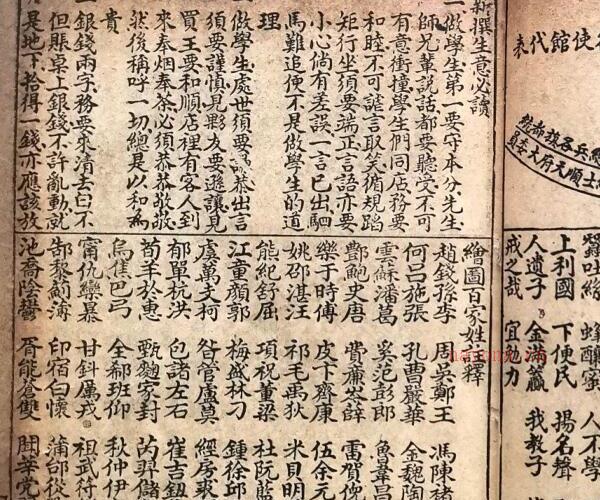 使館代表
蠶吐絲 蜂釀蜜 人不學
上利國 下便民 揚名聲
人遺子 金滿籯 我教子
戒之哉 宜勉力
新撰生意必讀
一做學生第一要守本分先生
師兄輩說話都要聽受不可
有意衝撞學生們同店務要
和睦不可謊言取笑循規蹈
矩行坐須要端正言語亦要
小心倘有差誤一言已出駟
馬難追便不是做學生的道
理
一做學生處世須要謙恭出言
須要謹慎見夥友要遜讓見
買王要和順店裡有客人到
來奉烟奉茶必須恭恭敬敬
然後稱呼一切總是以和為
貴
一銀錢兩字務要來清去白不
但賬桌上銀錢不許亂動就
是地下拾得一錢亦應該放
繪圖百家姓註釋
趙錢孫李 周吳鄭王 馮陳褚
何呂施張 孔曹嚴華 金魏陶
雲蘇潘葛 奚范彭郎 魚韋昌
酆鮑史唐 費廉岑薛 雷賀倪
樂于時傅 皮卞齊康 伍余元
姚邵湛汪 祁毛禹狄 米貝明
熊紀舒屈 項祝董梁 杜阮藍
江童顏郭 梅盛林刁 鍾徐邱
虞萬支柯 昝管盧莫 經房裘
郁單杭洪 包諸左石 崔吉鈕
荀羊於惠 甄麴家封 芮羿儲
烏焦巴弓 全郗班仰 秋仲伊
甯仇欒暴 甘鈄厲戎 祖武符
郜黎薊薄 印宿白懷 蒲邰從
池喬陰鬱 胥能蒼雙 聞莘党